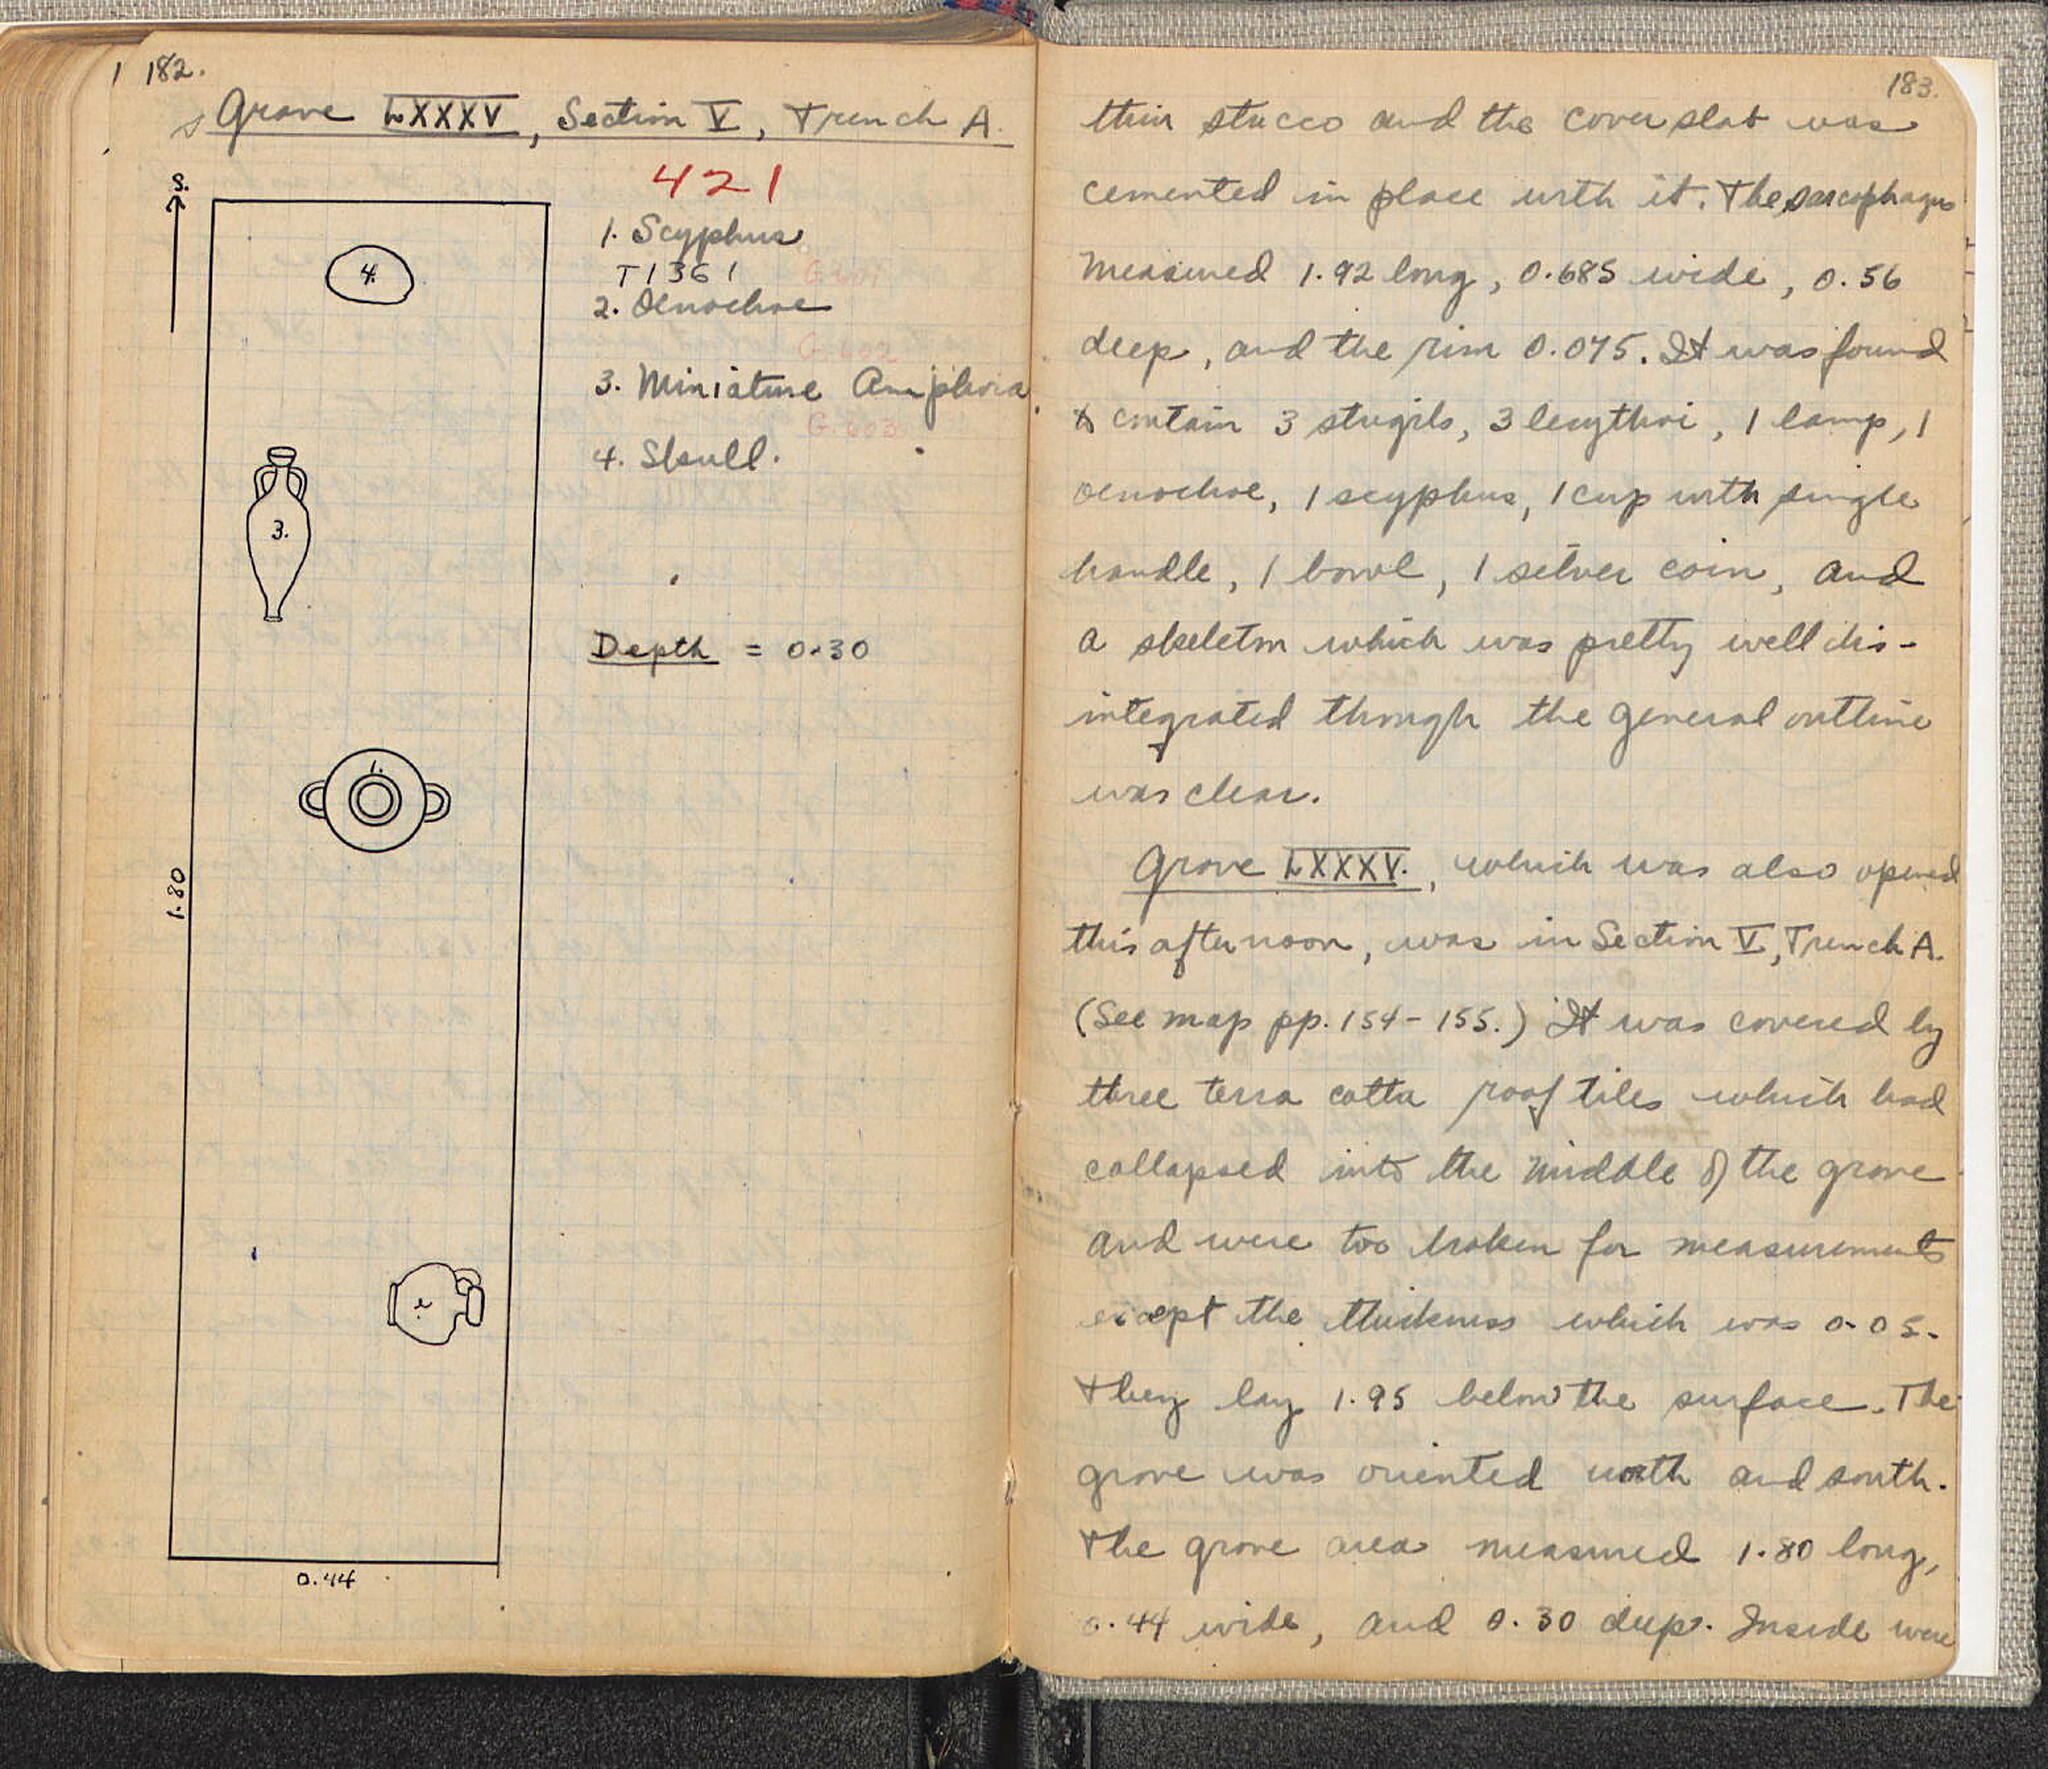 182.
Grave LXXXV, Section V, Trench A.
421
S.
1. Scyphus
T1361
G.601
2. Oenochoe
G.602
3. Miniature Amphora
G.603
4. Skull.
Depth = 0.30
4.
3.
1.
2
1.80
0.44
183.
thin stucco and the cover slab was
cemented in place with it. The sarcophagus
measured 1.92 long, 0.685 wide, 0.56
deep, and the rim 0.075. It was found
to contain 3 strigils, 3 lecythoi, 1 lamp, 1
oenochoe, 1 scyphus, 1 cup with single
handle, 1 bowl, 1 silver coin, and
a skeleton which was pretty well dis-
integrated though the general outline
was clear.
Grave LXXXV., which was also opened
this afternoon, was in Section V, Trench A.
(See map pp. 154-155.) It was covered by
three terra cotta roof tiles which had
collapsed into the middle of the grave
and were too broken for measurements
except the thickness which was 0.05.
They lay 1.95 below the surface. The
grave was oriented north and south.
The grave area measured 1.80 long,
0.44 wide, and 0.30 deep. Inside were